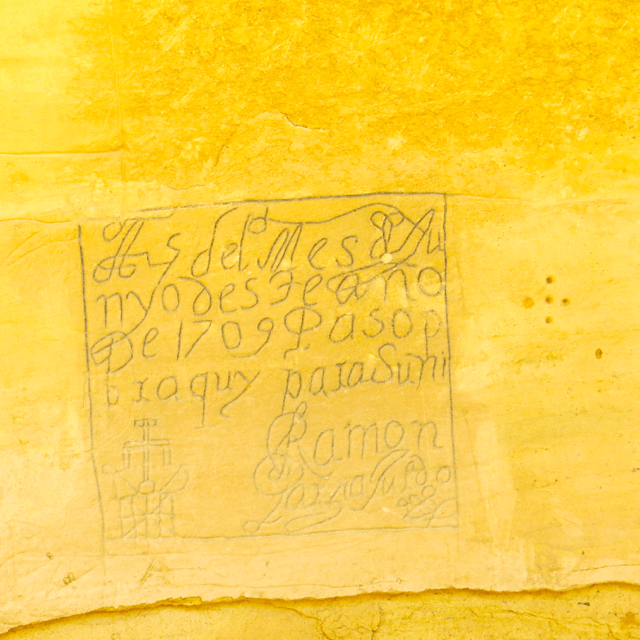 A 25 del Mes de Ju
nyo de este año
de 1709 paso p
r aquy para Suñi
Ramon